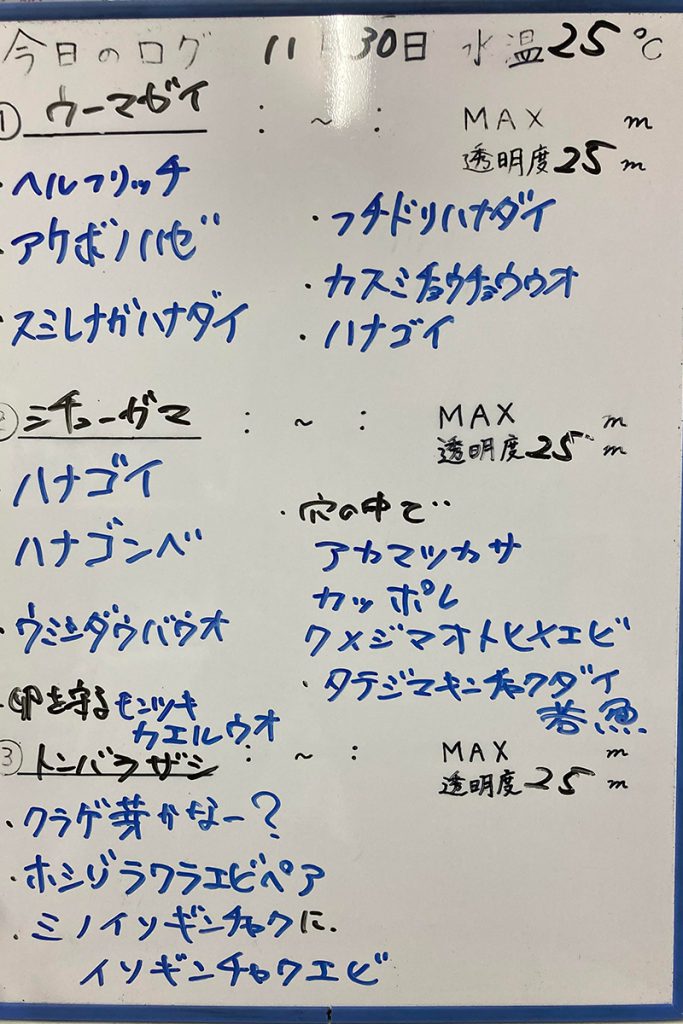 今日のログ 11月30日 水温25℃
① ウーマガイ : ~ : MAX m
透明度25m
・ヘルフリッチ
・アケボノハゼ
・スミレナガハナダイ
・フチドリハナダイ
・カスミチョウチョウウオ
・ハナゴイ
② ミチューガマ : ~ : MAX m
透明度25m
・ハナゴイ
ハナゴンベ
・ウミシダウバウオ
・卵を守るモンツキ
カエルウオ
・穴の中で
アカマツカサ
カッポレ
クメジマオトヒメエビ
・タテジマキンチャクダイ
若魚
③ トンバラザシ : ~ : MAX m
透明度25m
・クラゲ芽かなー?
・ホシゾラワラエビペア
・ミノイソギンチャクに.
イソギンチャクエビ